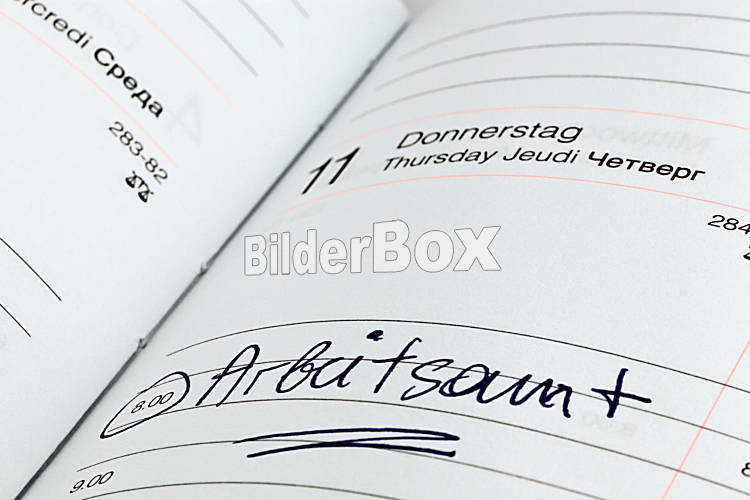 ercredi Среда
283-82
11 Donnerstag
Thursday Jeudi Четверг
284
BilderBox
8.00 Arbeitsamt
9.00